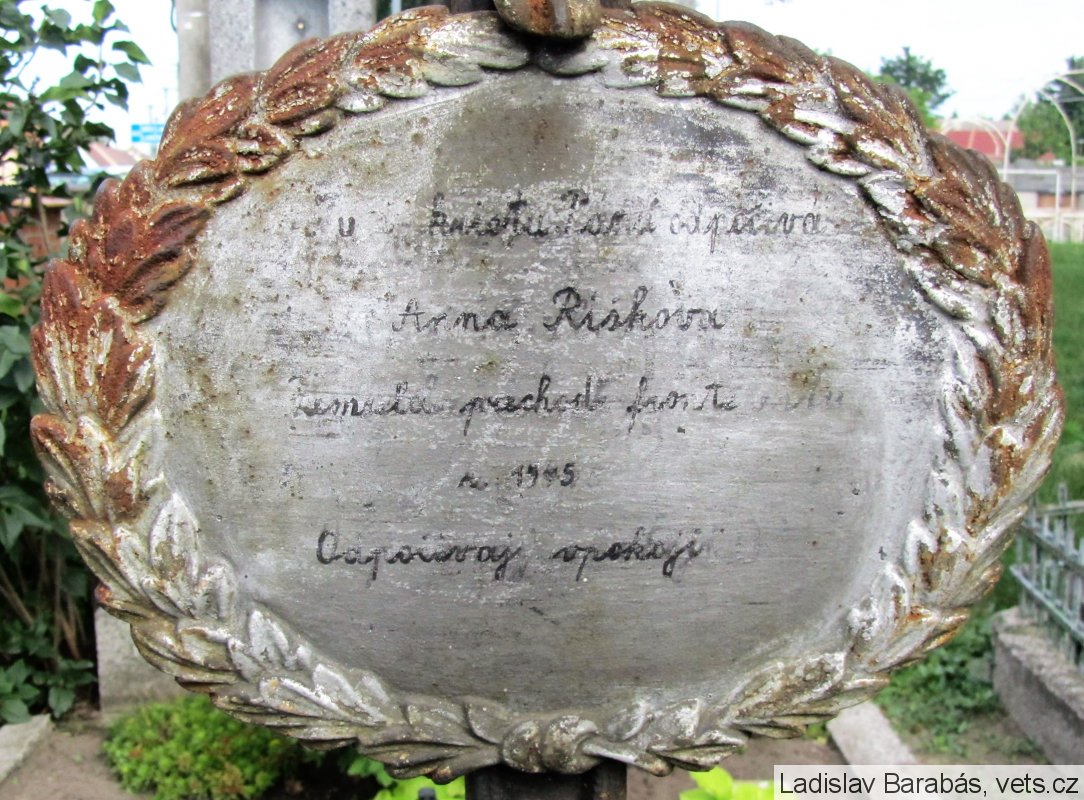 v Kristu Pánu odpočívá
Anna Riškova
Zemrela prechod fronte
r. 1945
Odpočivaj vpokoji
Ladislav Barabás, vets.cz